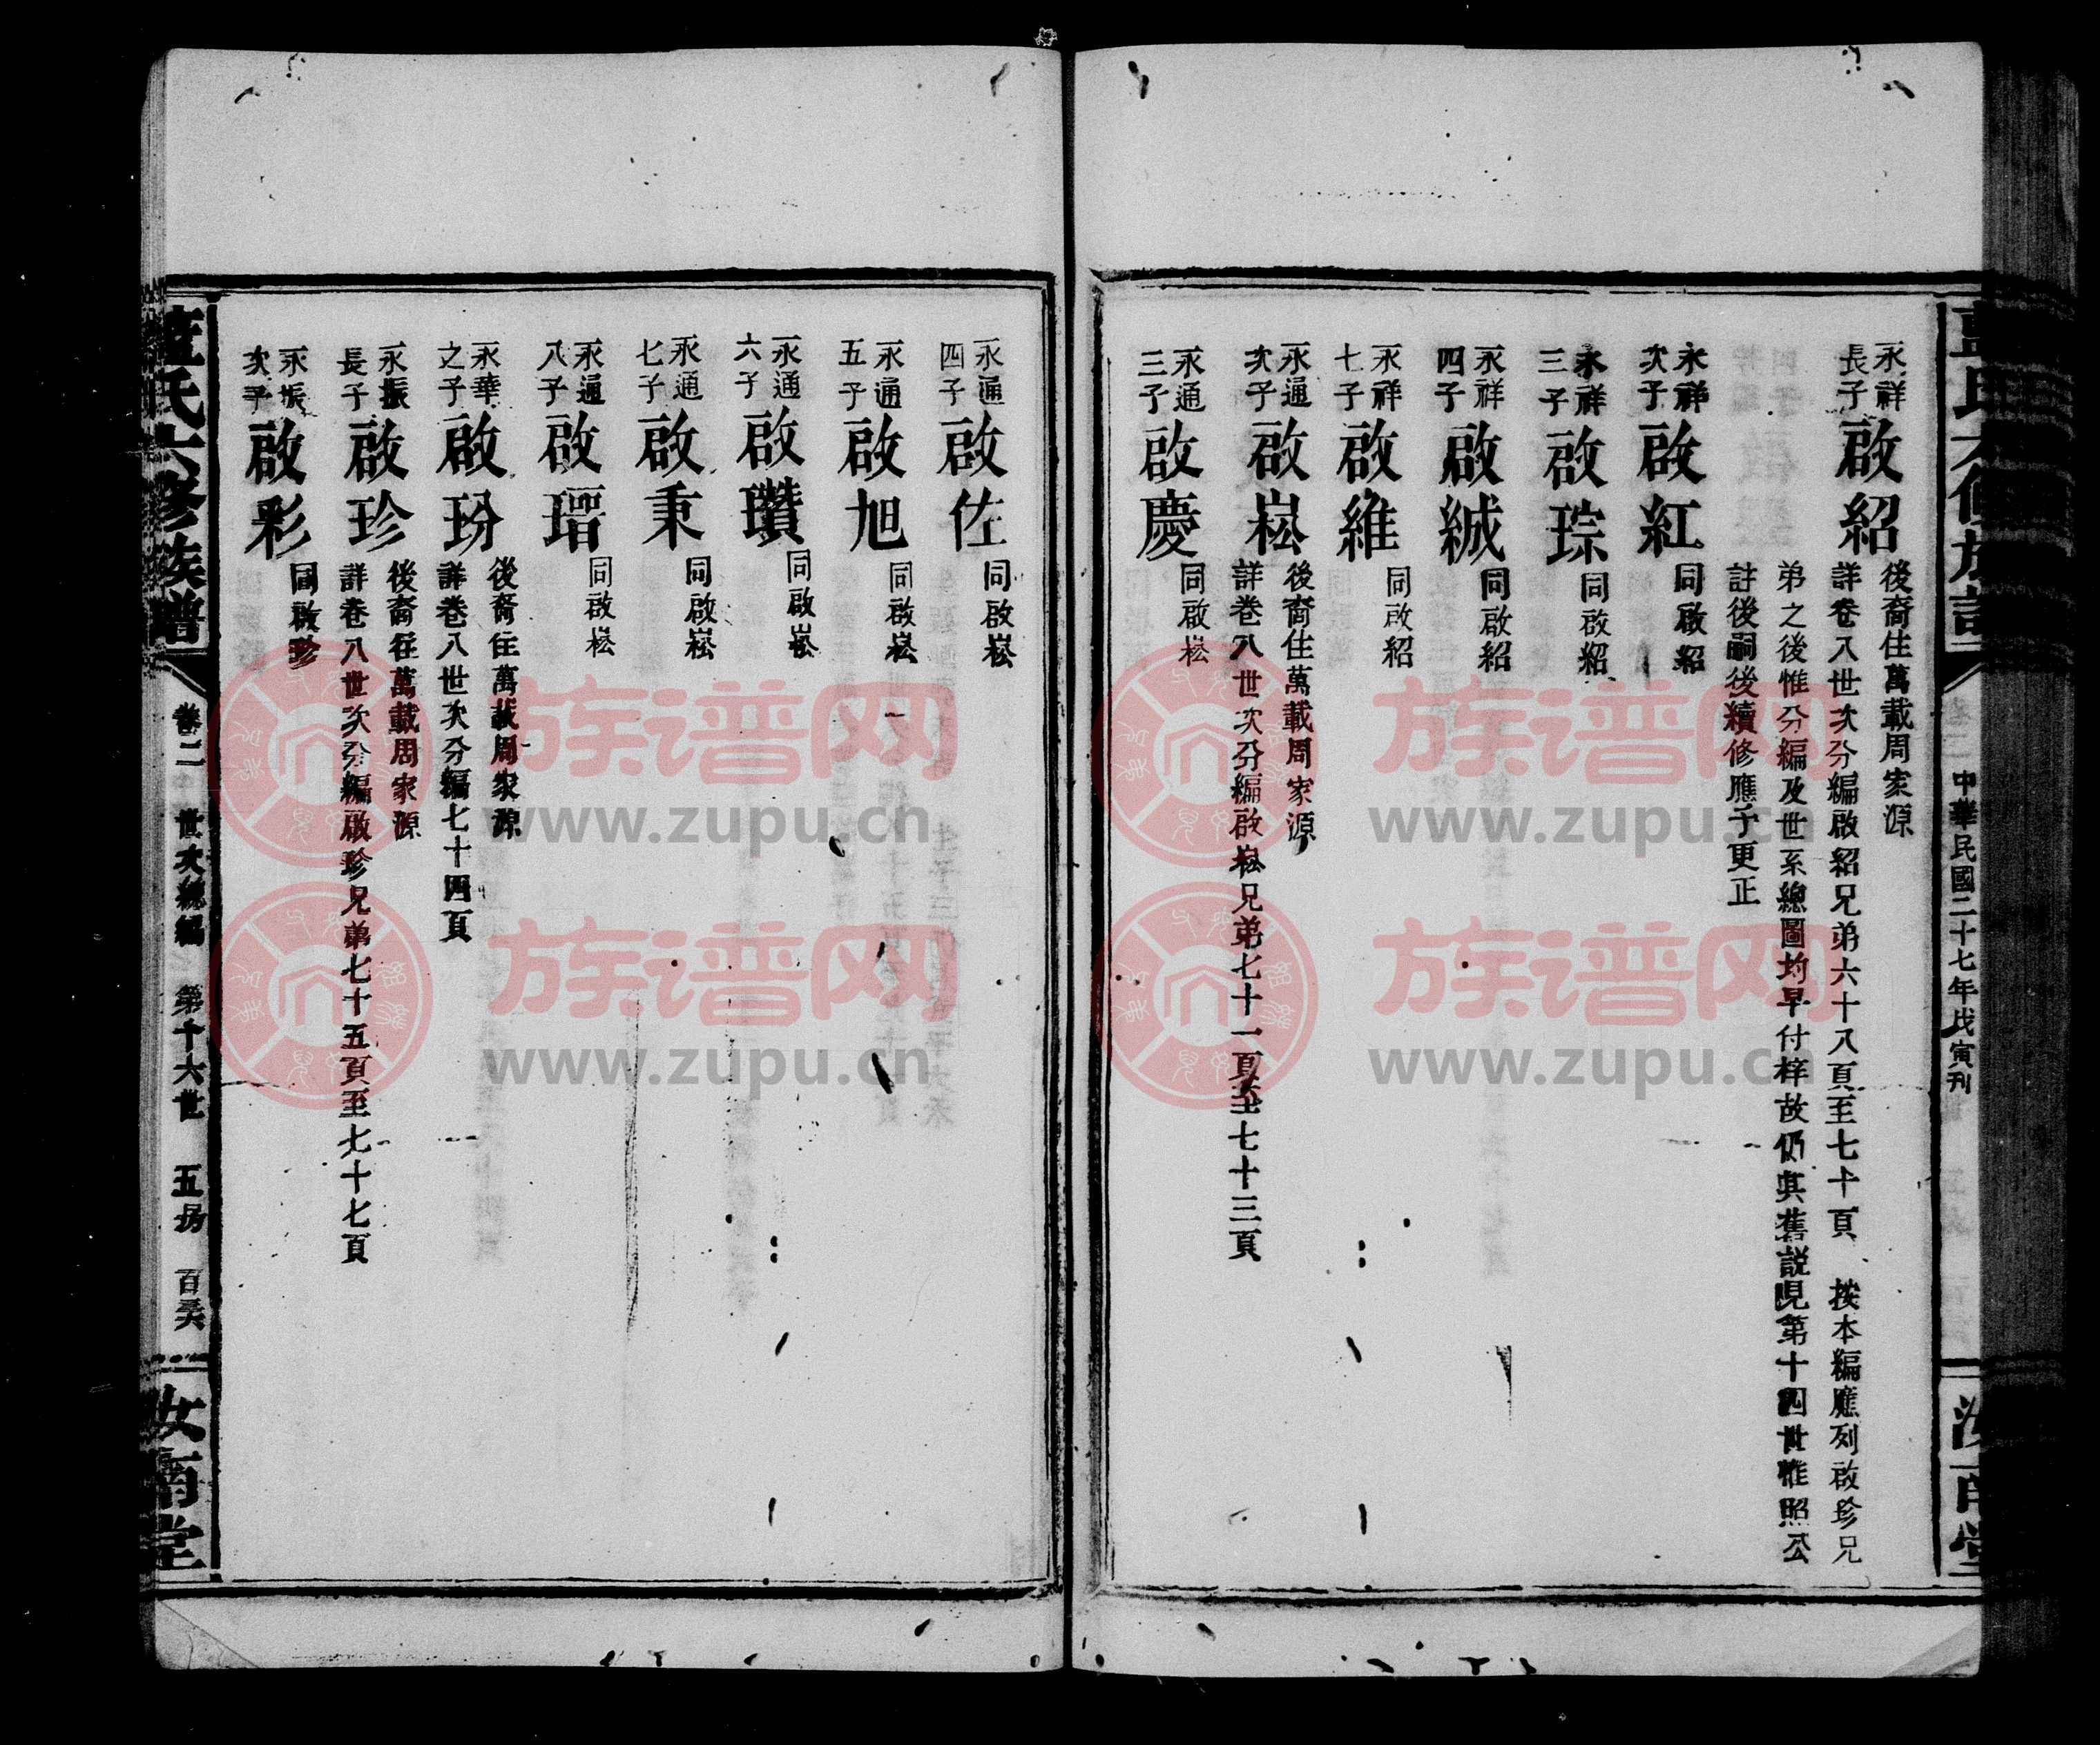 中華民國二十七年戊寅刊
永祥
長子
啟紹
後裔住萬載周家源
詳卷八世次分編啟紹兄弟六十八頁至七十頁　按本編應列啟珍兄
弟之後惟分編及世系總圖均早付梓故仍其舊説見第十四世惟照公
註後嗣後續修應予更正
永祥
次子
啟紅
同啟紹
永祥
三子
啟琮
同啟紹
永祥
四子
啟緎
同啟紹
永祥
七子
啟維
同啟紹
永通
次子
啟崧
後裔住萬載周家源
詳卷八世次分編啟崧兄弟七十一頁至七十三頁
永通
三子
啟慶
同啟崧
永通
四子
啟佐
同啟崧
永通
五子
啟旭
同啟崧
永通
六子
啟瓚
同啟崧
永通
七子
啟秉
同啟崧
永通
八子
啟瑨
同啟崧
永華
之子
啟玢
後裔住萬載周家源
詳卷八世次分編七十四頁
永振
長子
啟珍
後裔住萬載周家源
詳卷八世次分編啟珍兄弟七十五頁至七十七頁
永振
次子
啟彩
同啟珍
氏六修族譜
卷二　世次總編　第十六世　五房
汝南堂
族谱网
www.zupu.cn
族谱网
www.zupu.cn
族谱网
www.zupu.cn
族谱网
www.zupu.cn